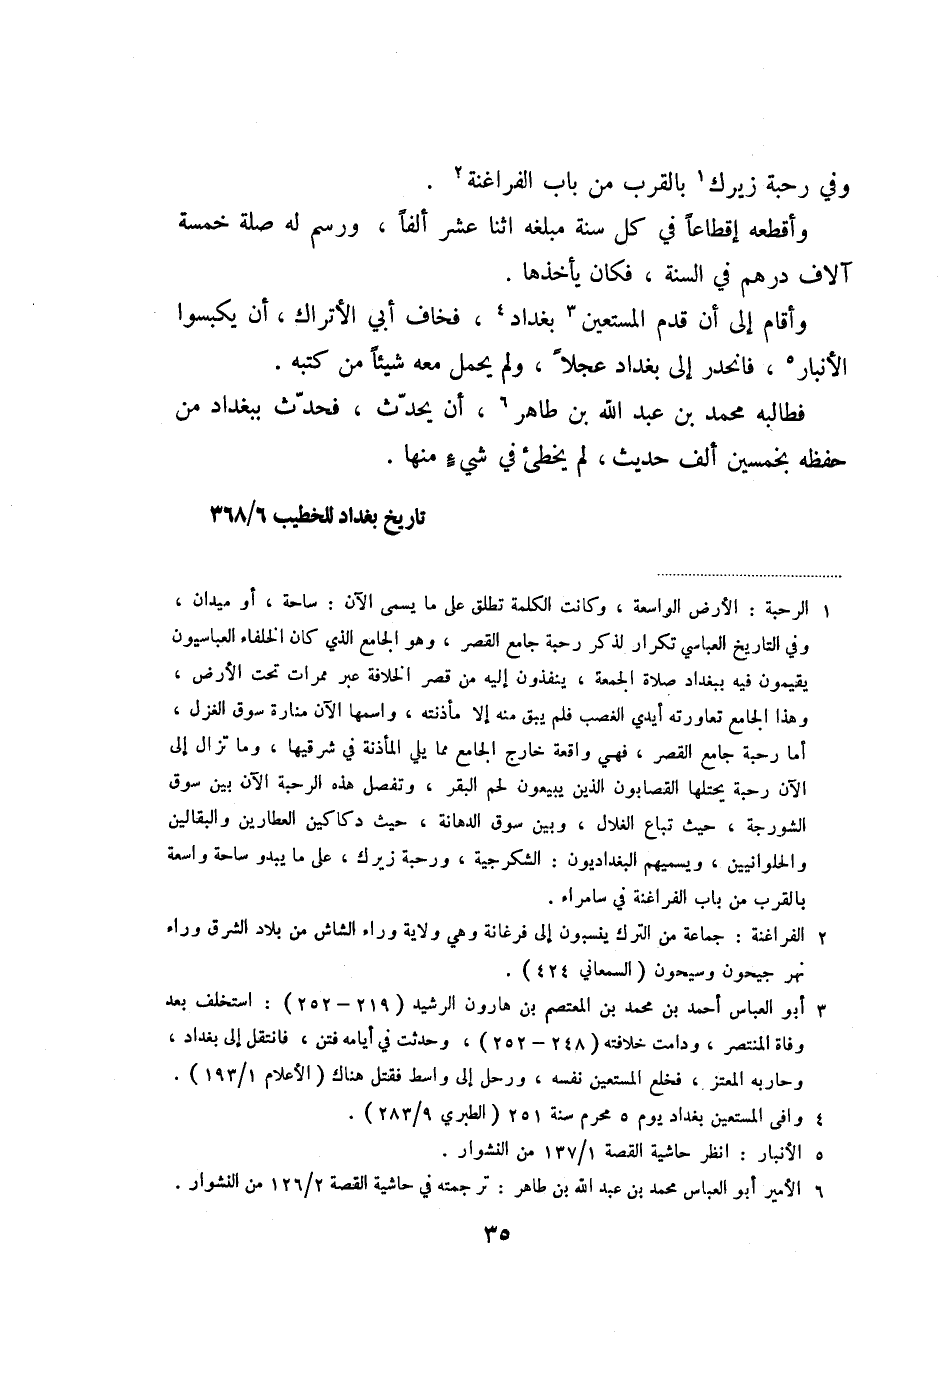 وفي رحبة زيرك١ بالقرب من باب الفراغنة٢ .
وأقطعه إقطاعاً في كل سنة مبلغه اثنا عشر ألفاً ، ورسم له صلة خمسة
آلاف درهم في السنة ، فكان يأخذها .
وأقام إلى أن قدم المستعين٣ بغداد٤ ، فخاف أبي الأتراك ، أن يكبسوا
الأنبار٥ ، فانحدر إلى بغداد عجلاً ، ولم يحمل معه شيئاً من كتبه .
فطالبه محمد بن عبد الله بن طاهر٦ ، أن يحدّث ، فحدّث ببغداد من
حفظه بخمسين ألف حديث ، لم يخطئ في شيءٍ منها .
تاريخ بغداد للخطيب ٣٦٨/٦
١ الرحبة : الأرض الواسعة ، وكانت الكلمة تطلق على ما يسمى الآن : ساحة ، أو ميدان ،
وفي التاريخ العباسي تكرار لذكر رحبة جامع القصر ، وهو الجامع الذي كان الخلفاء العباسيون
يقيمون فيه ببغداد صلاة الجمعة ، ينفذون إليه من قصر الخلافة عبر ممرات تحت الأرض ،
وهذا الجامع تعاورته أيدي الغصب فلم يبق منه إلا مأذنته ، واسمها الآن منارة سوق الغزل ،
أما رحبة جامع القصر ، فهي واقعة خارج الجامع مما يلي المأذنة في شرقيها ، وما تزال إلى
الآن رحبة يحتلها القصابون الذين يبيعون لحم البقر ، وتفصل هذه الرحبة الآن بين سوق
الشورجة ، حيث تباع الغلال ، وبين سوق الدهانة ، حيث دكاكين العطارين والبقالين
والحلوانيين ، ويسميهم البغداديون : الشكرجية ، ورحبة زيرك ، على ما يبدو ساحة واسعة
بالقرب من باب الفراغنة في سامراء .
٢ الفراغنة : جماعة من الترك ينسبون إلى فرغانة وهي ولاية وراء الشاش من بلاد الشرق وراء
نهر جيحون وسيحون ( السمعاني ٤٢٤ ) .
٣ أبو العباس أحمد بن محمد بن المعتصم بن هارون الرشيد ( ٢١٩ – ٢٥٢ ) : استخلف بعد
وفاة المنتصر ، ودامت خلافته ( ٢٤٨ – ٢٥٢ ) ، وحدثت في أيامه فتن ، فانتقل إلى بغداد ،
وحاربه المعتز ، فخلع المستعين نفسه ، ورحل إلى واسط فقتل هناك ( الأعلام ١٩٣/١ ) .
٤ وافى المستعين بغداد يوم ٥ محرم سنة ٢٥١ ( الطبري ٢٨٣/٩ ) .
٥ الأنبار : انظر حاشية القصة ١٣٧/١ من النشوار .
٦ الأمير أبو العباس محمد بن عبد الله بن طاهر : ترجمته في حاشية القصة ١٢٦/٢ من النشوار .
٣٥